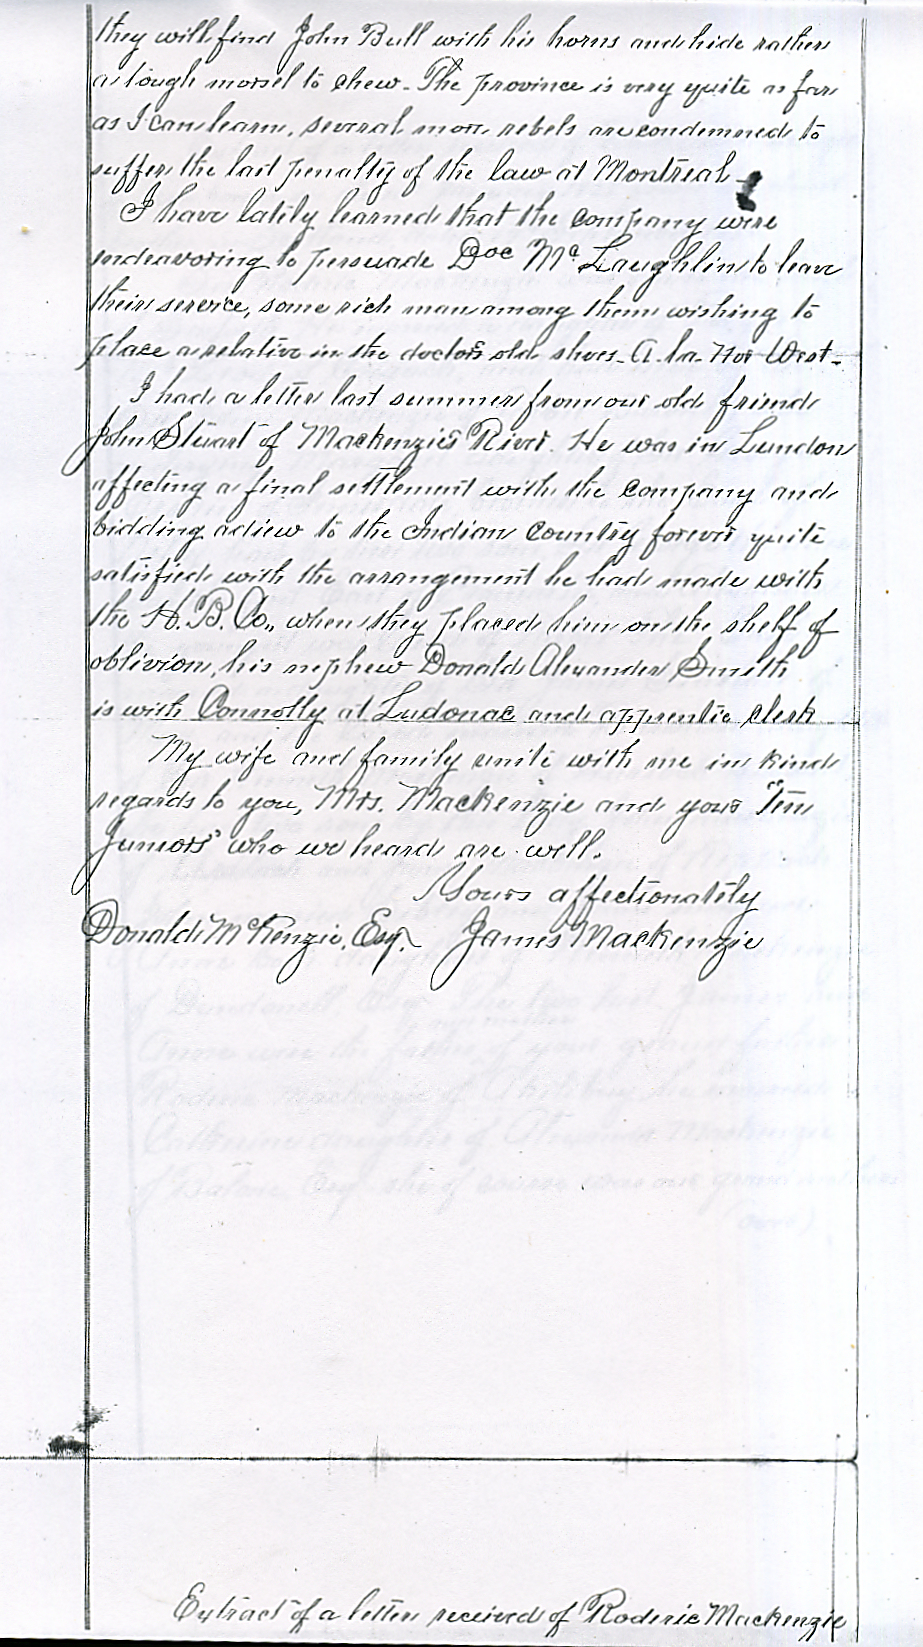 they will find John Bull with his horns and hide rather
a tough morsel to chew - The province is very quite as far
as I can learn, several more rebels are condemned to
suffer the last penalty of the law at Montreal -
I have lately learned that the company were
endeavoring to persuade Doc Mc Laughlin to leave
their service, some rich man among them wishing to
place a relative in the doctors old shoes - A. la. Nor West -
I had a letter last summer from our old friend
John Stuart of Mackenzie's River. He was in London
affecting a final settlement with the company and
bidding adieu to the Indian country forever quite
satisfied with the arrangement he had made with
the H. B. Co., when they placed him on the shelf of
oblivion, his nephew Donald Alexander Smith
is with Connolly at Ludonac and apprentic clerk
My wife and family unite with me in kind
regards to you, Mrs. Mackenzie and your "Ten
Juniors" who we heard are well.
Yours affectionately
Donald McKenzie, Esq. James Mackenzie
Extract of a letter received of Roderic Mackenzie